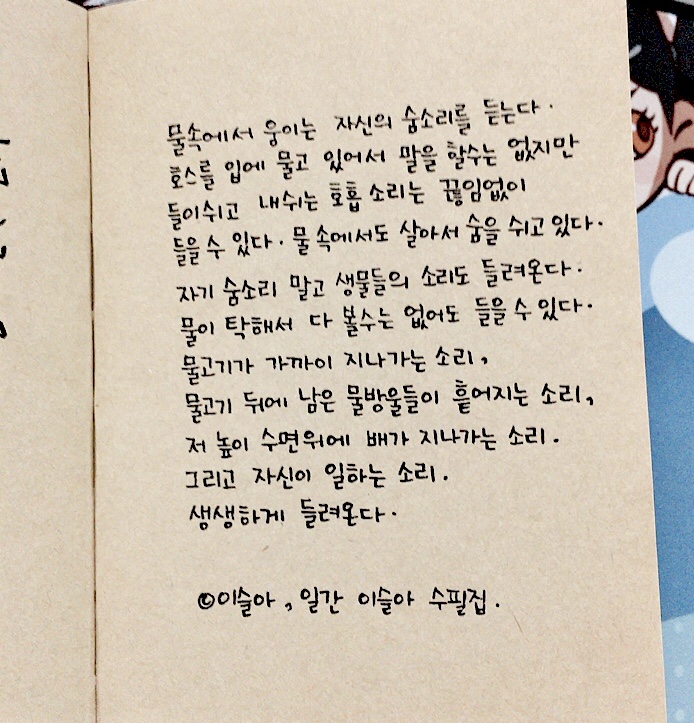 물속에서 웅이는 자신의 숨소리를 듣는다.
호스를 입에 물고 있어서 말을 할수는 없지만
들이쉬고 내쉬는 호흡 소리는 끊임없이
들을 수 있다. 물 속에서도 살아서 숨을 쉬고 있다.
자기 숨소리 말고 생물들의 소리도 들려온다.
물이 탁해서 다 볼수는 없어도 들을 수 있다.
물고기가 가까이 지나가는 소리,
물고기 뒤에 남은 물방울들이 흩어지는 소리,
저 높이 수면위에 배가 지나가는 소리.
그리고 자신이 일하는 소리.
생생하게 들려온다.
©이슬아, 일간 이슬아 수필집.